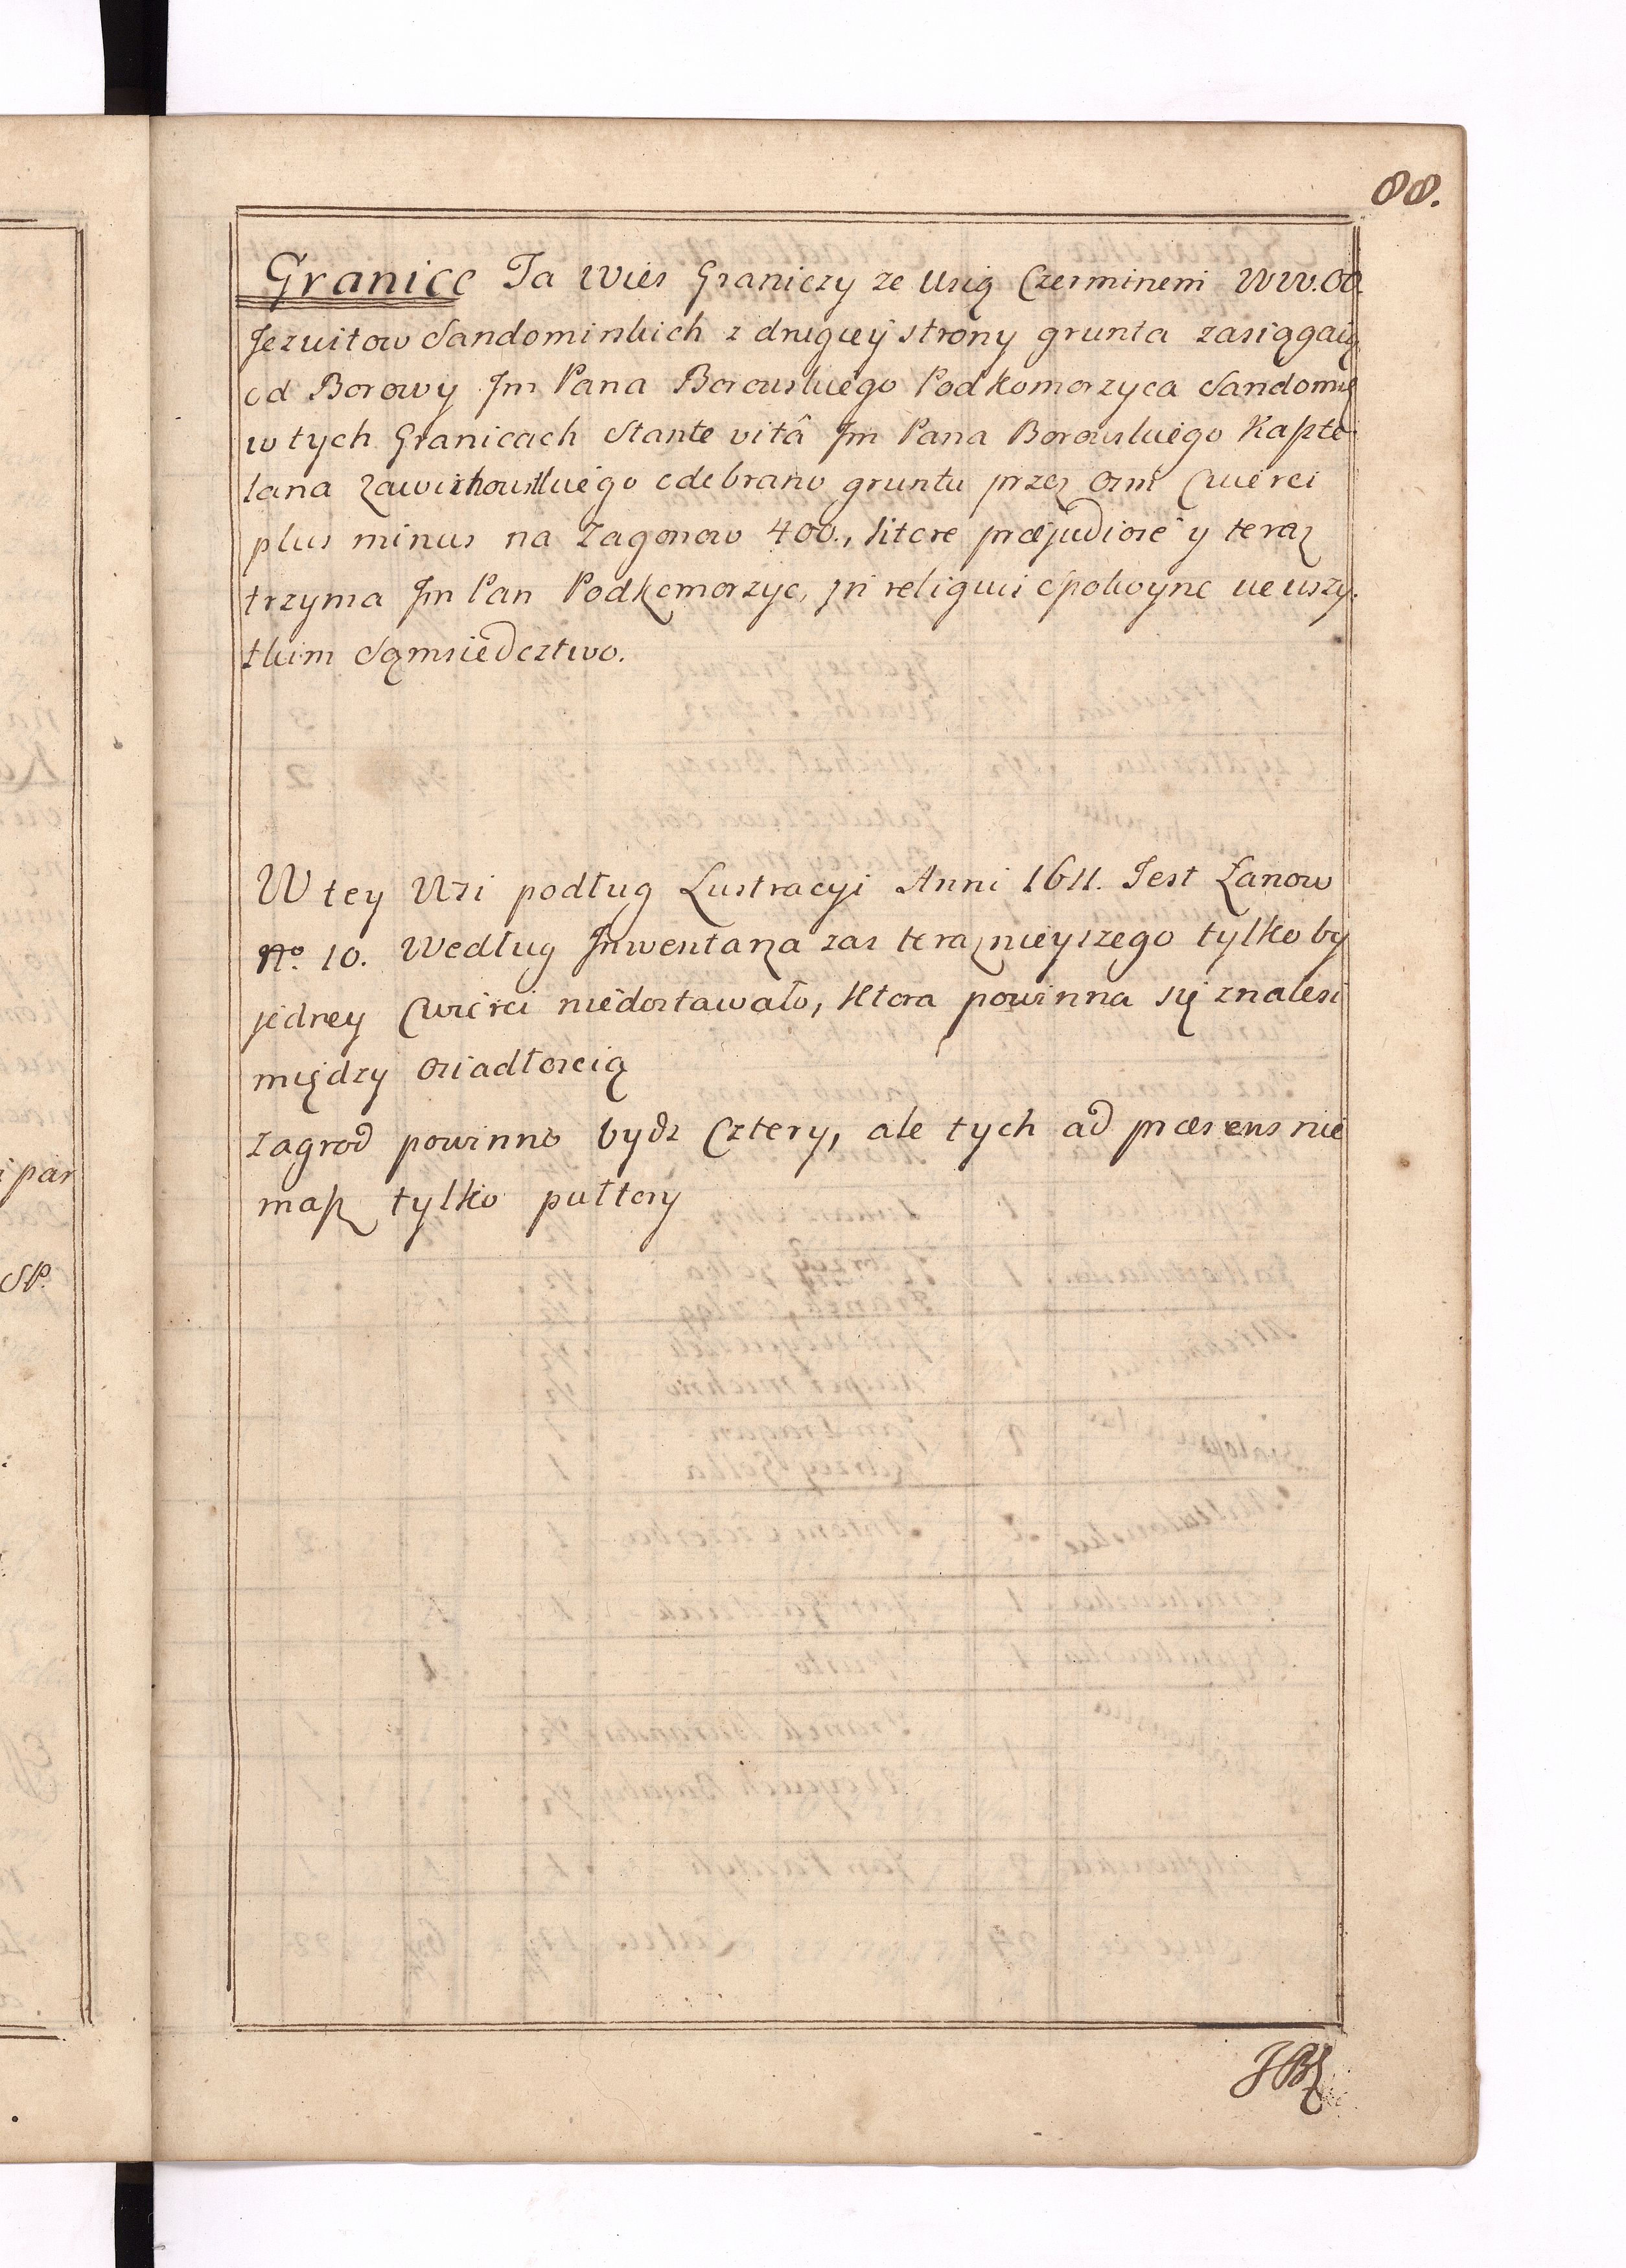 88.
Granice Ta Wies Graniczy ze Wsią Czerminem WW.OO.
Jezuitow Sandomirskich z drugiey strony grunta zasięgaią
od Borowy Jm Pana Borowskiego Podkomorzyca Sandomir
w tych Granicach Stante vitâ Jm Pana Borowskiego Kaszte-
lana Zawichowskiego odebrano gruntu przez osm Cwierci
plus minus na Zagonow 400., sitore præjudiose y teraz
trzyma Jm Pan Podkomorzyc, in reliquis spokoyne we wszy-
tkim Sąmsiedcztwo.
W tey Wsi podług Lustracyi Anni 1611. Jest Łanow
No. 10. Według Jnwentarza zas teraznieyszego tylko by
jedney Cwierci niedostawało, ktora powinna się znalesi
między osiadłoscią
zagrod powinno bydz Cztery, ale tych ad præsens nie
masz tylko pułtory
JBK
i par
SP.